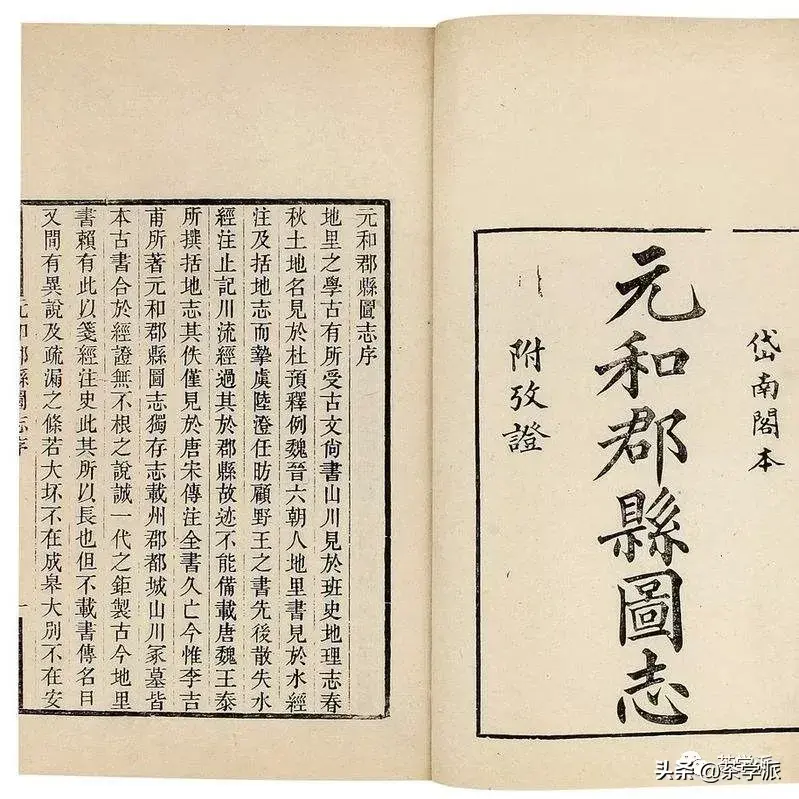 岱南閣本
元和郡縣圖志
附攷證
元和郡縣圖志序
地里之學古有所受古文尙書山川見於班史地理志春
秋土地名見於杜預釋例魏晉六朝人地里書見於水經
注及括地志而摯虞陸澄任昉顧野王之書先後散失水
經注止記川流經過其於郡縣故迹不能備載唐魏王泰
所撰括地志其佚僅見於唐宋傳注全書久亡今惟李吉
甫所著元和郡縣圖志獨存志載州郡都城山川冢墓皆
本古書合於經證無不根之說誠一代之鉅製古今地里
書賴有此以箋經注史此其所以長也但不載書傳名目
又間有異說及疏漏之條若大坯不在成皋大別不在安
元和郡縣圖志序
一
茶学派
头条 @茶学派